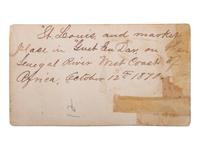 "St. Louis, and market
place in Guet En Dar, on the
Senegal River West Coast of
Africa, October 12th 1890